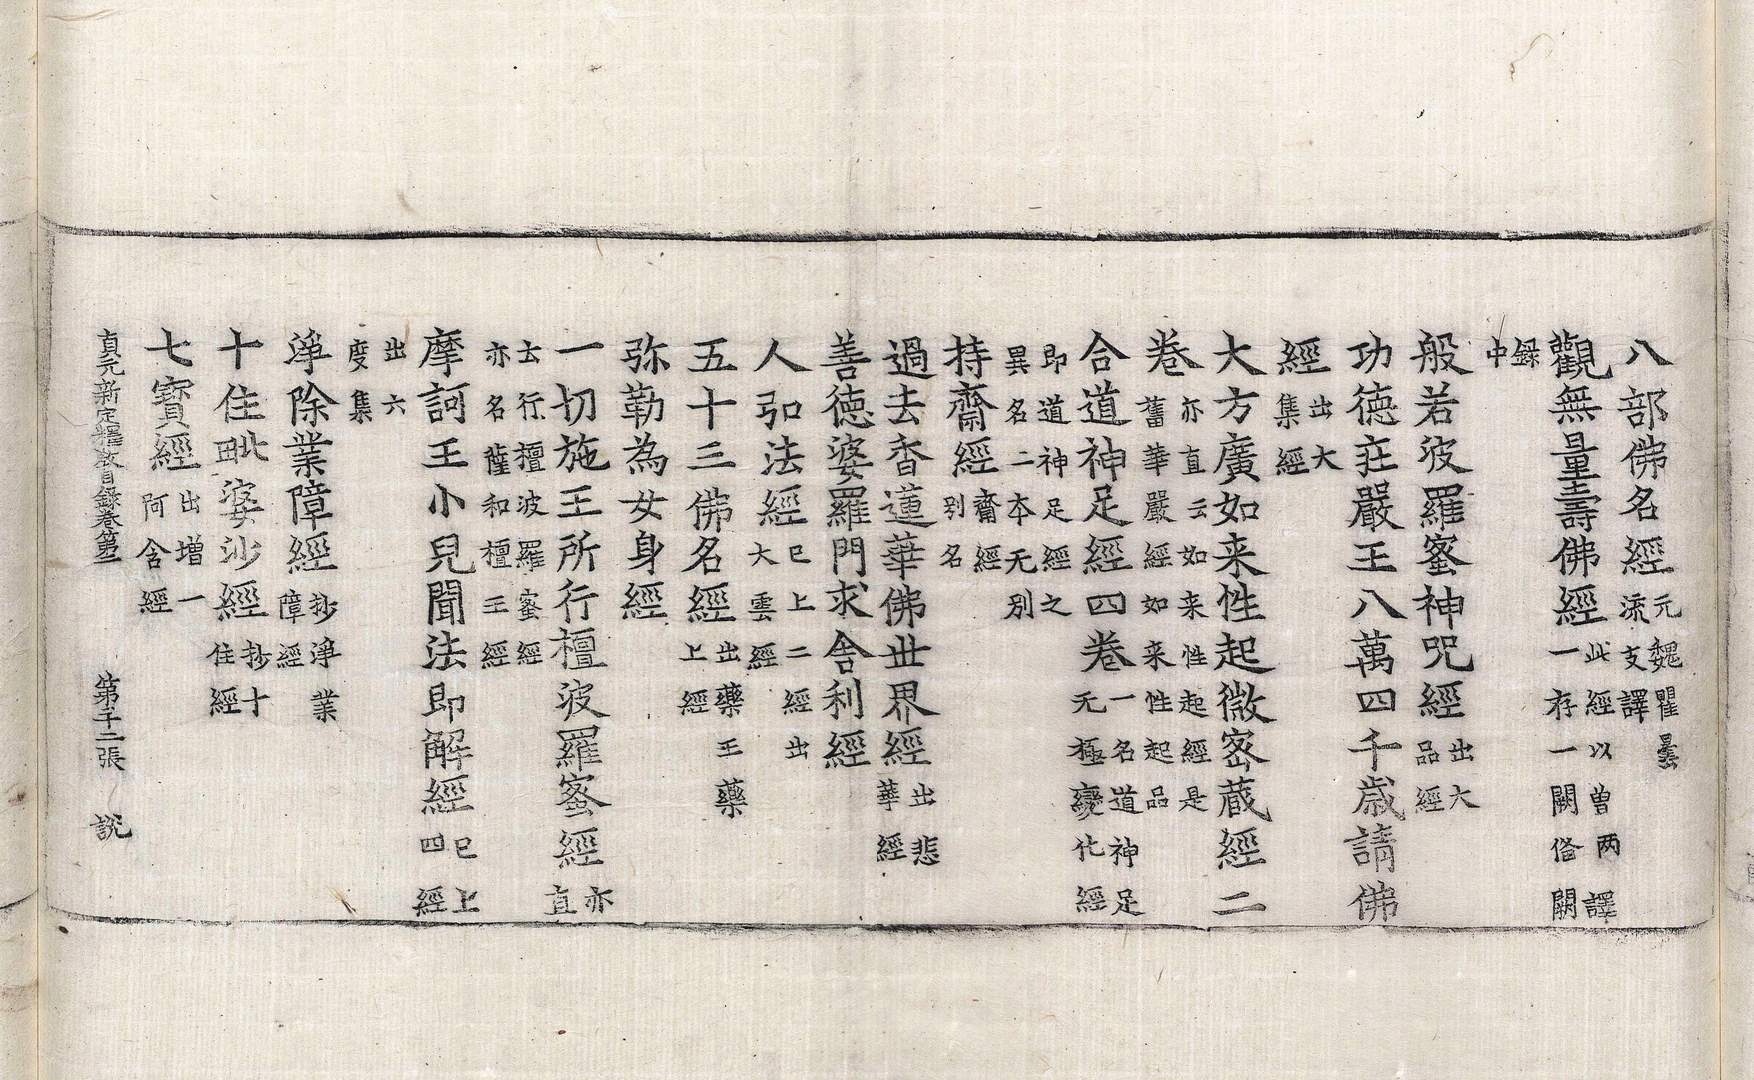 八部佛名經元魏瞿曇流支譯
觀無量壽佛經此經以曾兩譯一存一闕俗闕
録中
般若波羅蜜神呪經出大品經
功德莊嚴王八萬四千歲請佛
經出大集經
大方廣如来性起微宻蔵經二
卷亦直云如来性起經是舊華嚴經如来性起品
合道神足經四卷一名道神足无極變化經
即道神足經之異名二本无別
持齋經齋經別名
過去香蓮華佛丗界經出悲華經
善德婆羅門求舎利經
人弘法經已上二經出大雲經
五十三佛名經出藥王藥上經
弥勒為女身經
一切施王所行檀波羅蜜經亦直
云行檀波羅蜜經亦名薩和檀王經
摩訶王小兒聞法即解經已上四經
出六度集
淨除業障經抄淨業障經
十住毗婆沙經抄十住經
七寳經出增一阿含經
貞元新定釋教目録卷第二　第二張　説